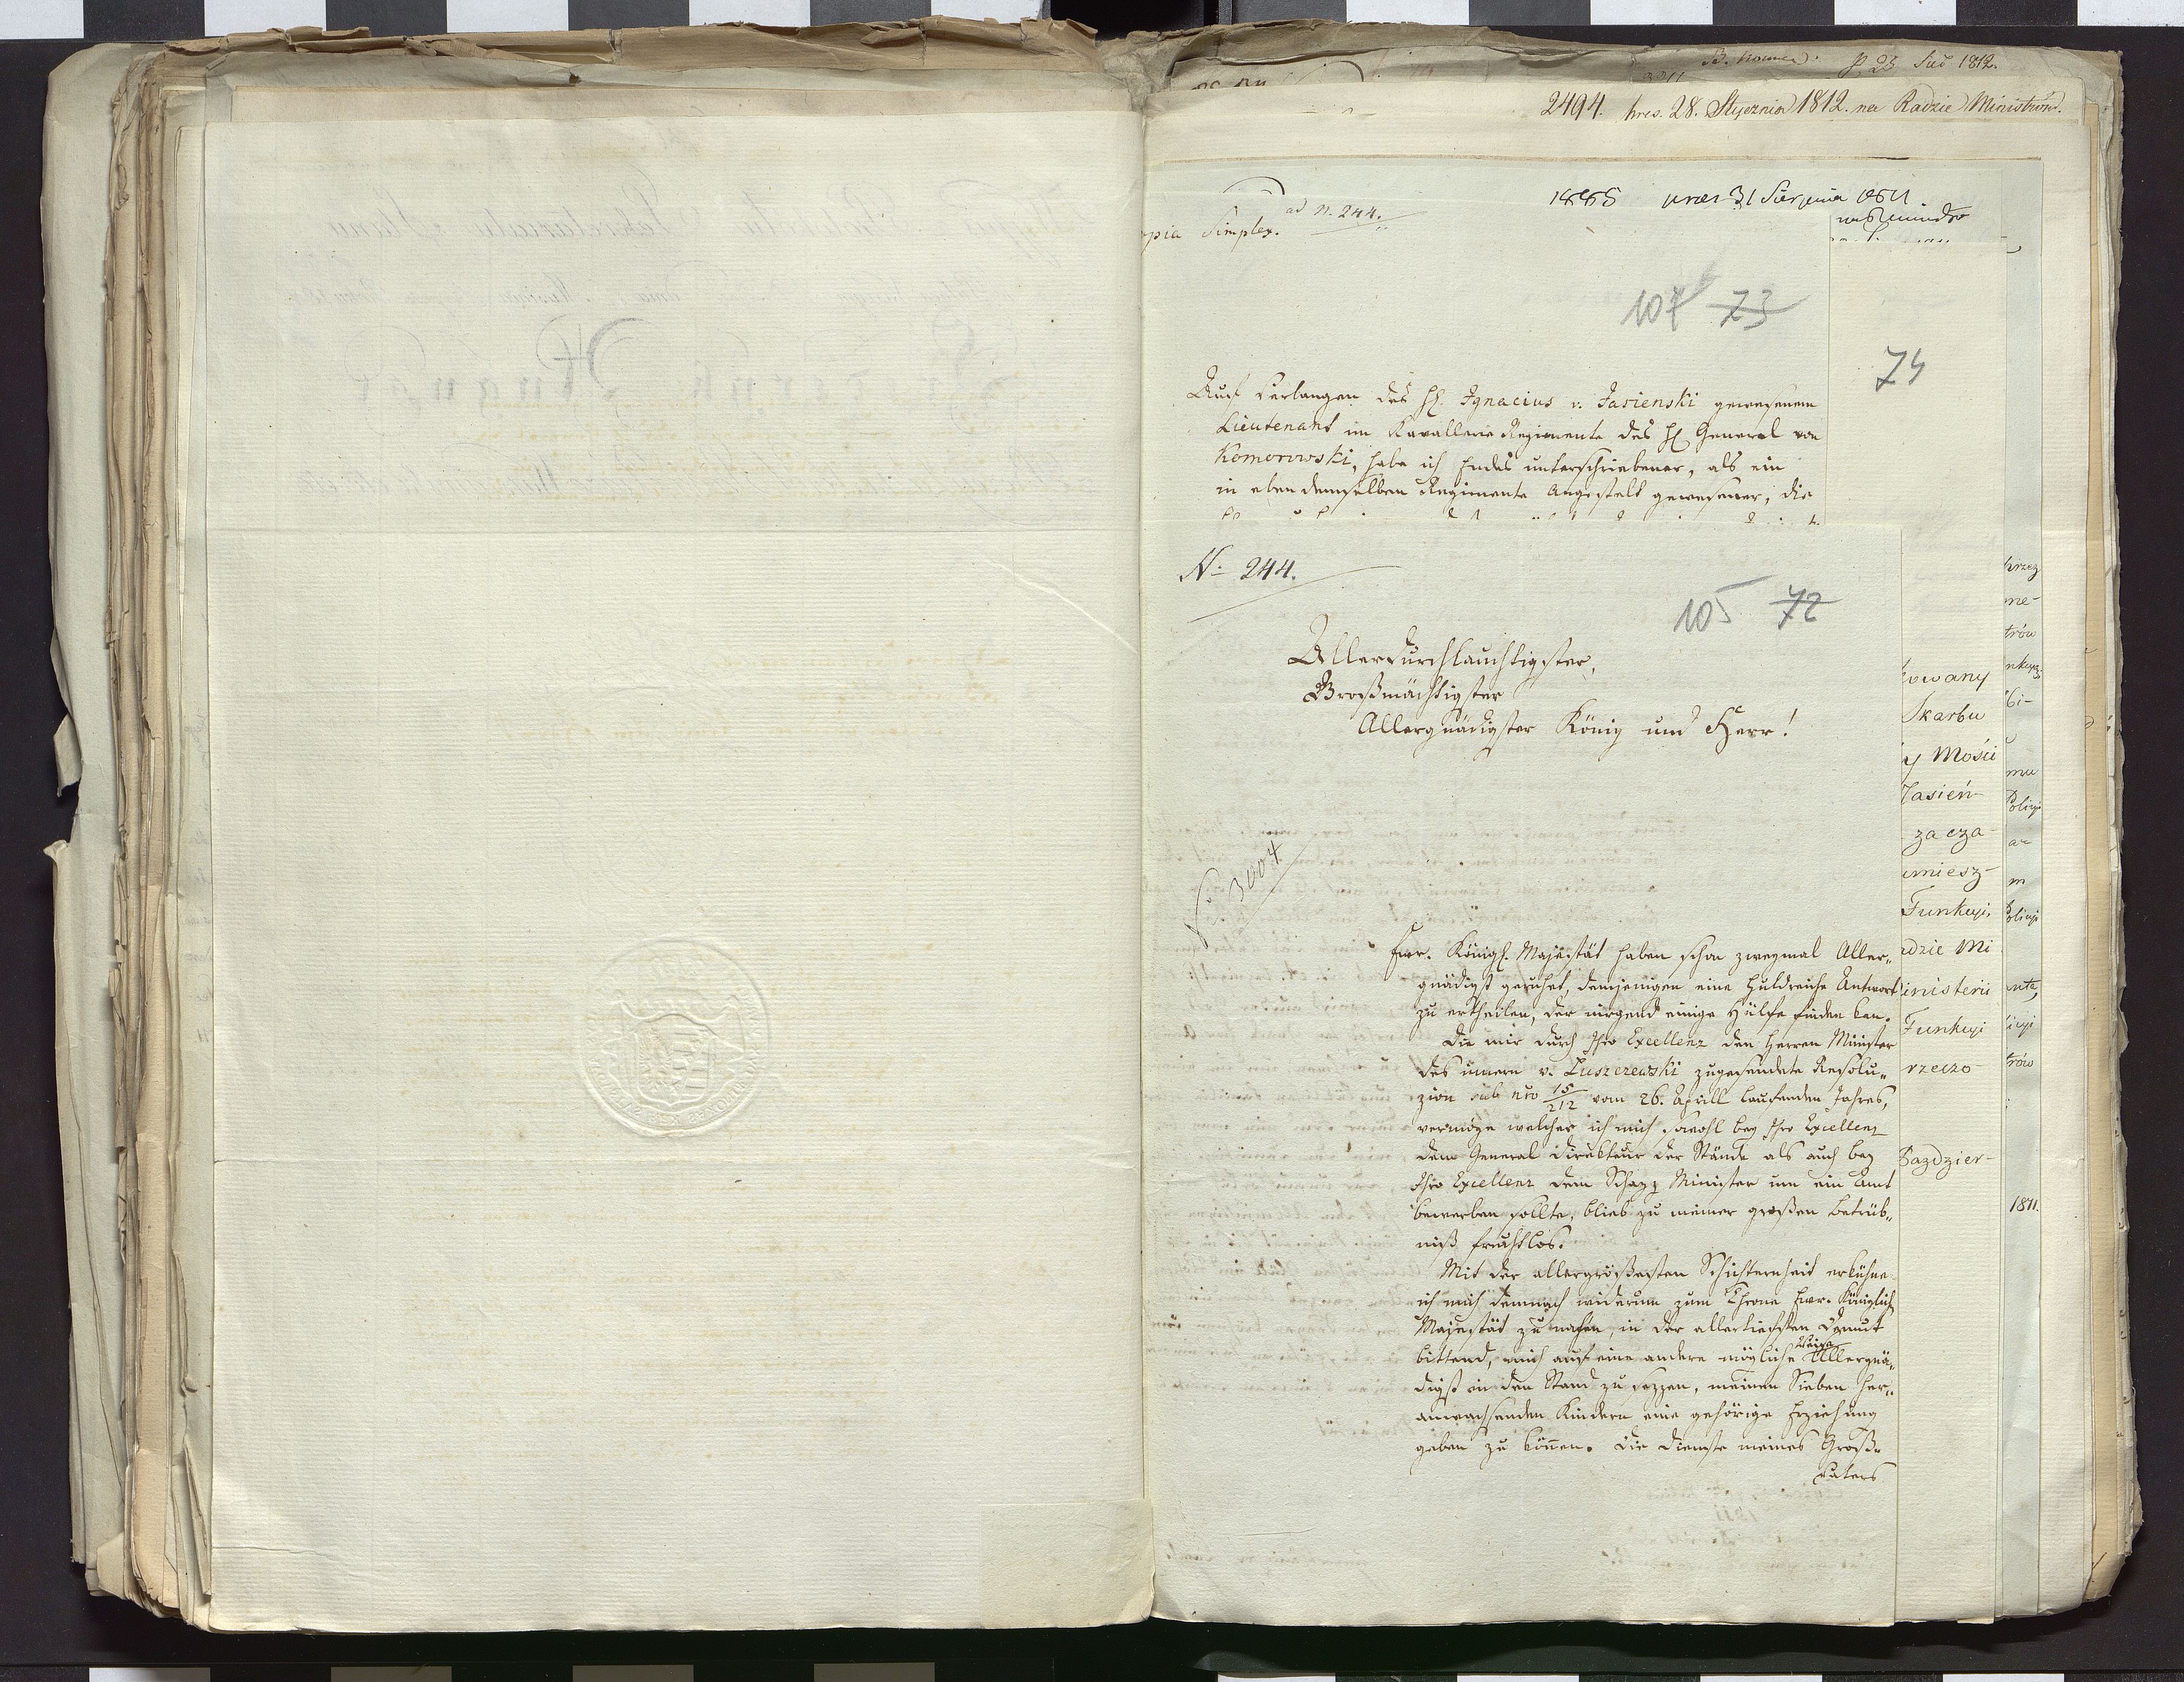 2494. pres. 28. Stycznia 1812. na Radzie Ministrów.
1885 pres 31 Sierpnia 1811
ad N. 244.
pia Simplex.
107 73
74
Auf Verlangen des H. Ignacius v. Jasienski gewesenem
Lieutenant im Kavallerie Regimente des H. General von
Komorowski, habe ich Endes unterschriebener, als ein
in eben demselben Regimente angestelt gewesener, die
N. 244.
105 72
Allerdurchlauchtigster,
Großmächtigster
Allergnädigster König und Herr!
No. 3004
Euer. Königl. Majestät haben schon zweymal Aller„
gnädigst geruhet, demjenigen eine huldreiche Antwort
zu ertheilen, der nirgend einige Hülfe finden kan.
Die mir durch Ihro Excellenz den Herren Minister
des innern v. Luszczewski zugesendete Resolu„
zion sub nro 15/212 vom 26. Aprill laufenden Jahres,
vermöge welcher ich mich sowohl bey Ihro Excellenz
dem General Direkteur der Stände als auch bey
Ihro Excellenz dem Schazz Minister um ein Amt
bewerben sollte, blieb zu meiner großen Betrüb„
niß fruchtlos.
Mit der allergrößesten Schichternheit erkühne
ich mich demnach widerum zum Throne Euer. Königlich
Majestät zu nahen, in der allertiefsten Demut
bittend, mich auf eine andere mögliche Weise Allergnä„
digst in den Stand zu sezzen, meinen Sieben her„
anwachsenden Kindern eine gehörige Erziehung
geben zu können. Die Dienste meines Groß„
vaters
kowany
Skarbu
y Mości
Jasień-
za cza-
umiesz-
Funkcyi,
adzie Mi
inisterii
Funkcyi
rzeczo-
Pazdzier-
przez
me-
trów
mu
Policyi
ar
m
olicyi
nta,
icyi
trów
1811.